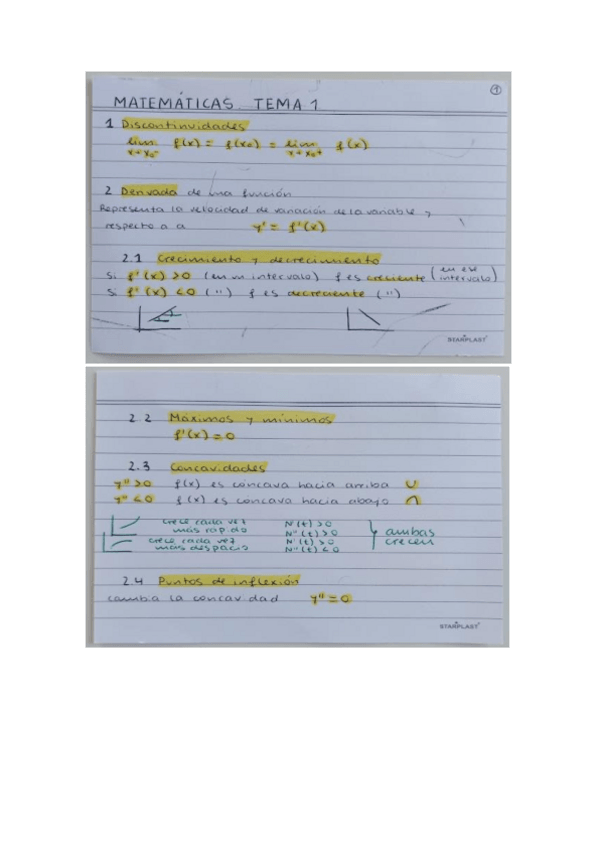 1
MATEMÁTICAS TEMA 1
1 Discontinuidades
lim x→x0- f(x) = f(x0) = lim x→x0+ f(x)
2 Derivada de una función
Representa la velocidad de variación de la variable y
respecto a a y' = f'(x)
2.1 Crecimiento y decrecimiento
Si f'(x) > 0 (en un intervalo) f es creciente (en ese intervalo)
Si f'(x) < 0 (") f es decreciente (")
STARPLAST
2.2 Máximos y mínimos
f'(x) = 0
2.3 Concavidades
y'' > 0 f(x) es cóncava hacia arriba ∪
y'' < 0 f(x) es cóncava hacia abajo ∩
crece cada vez N'(t) > 0
más rápido N''(t) > 0
crece cada vez N'(t) > 0
más despacio N''(t) < 0
ambas
crecen
2.4 Puntos de inflexión
cambia la concavidad y'' = 0
STARPLAST